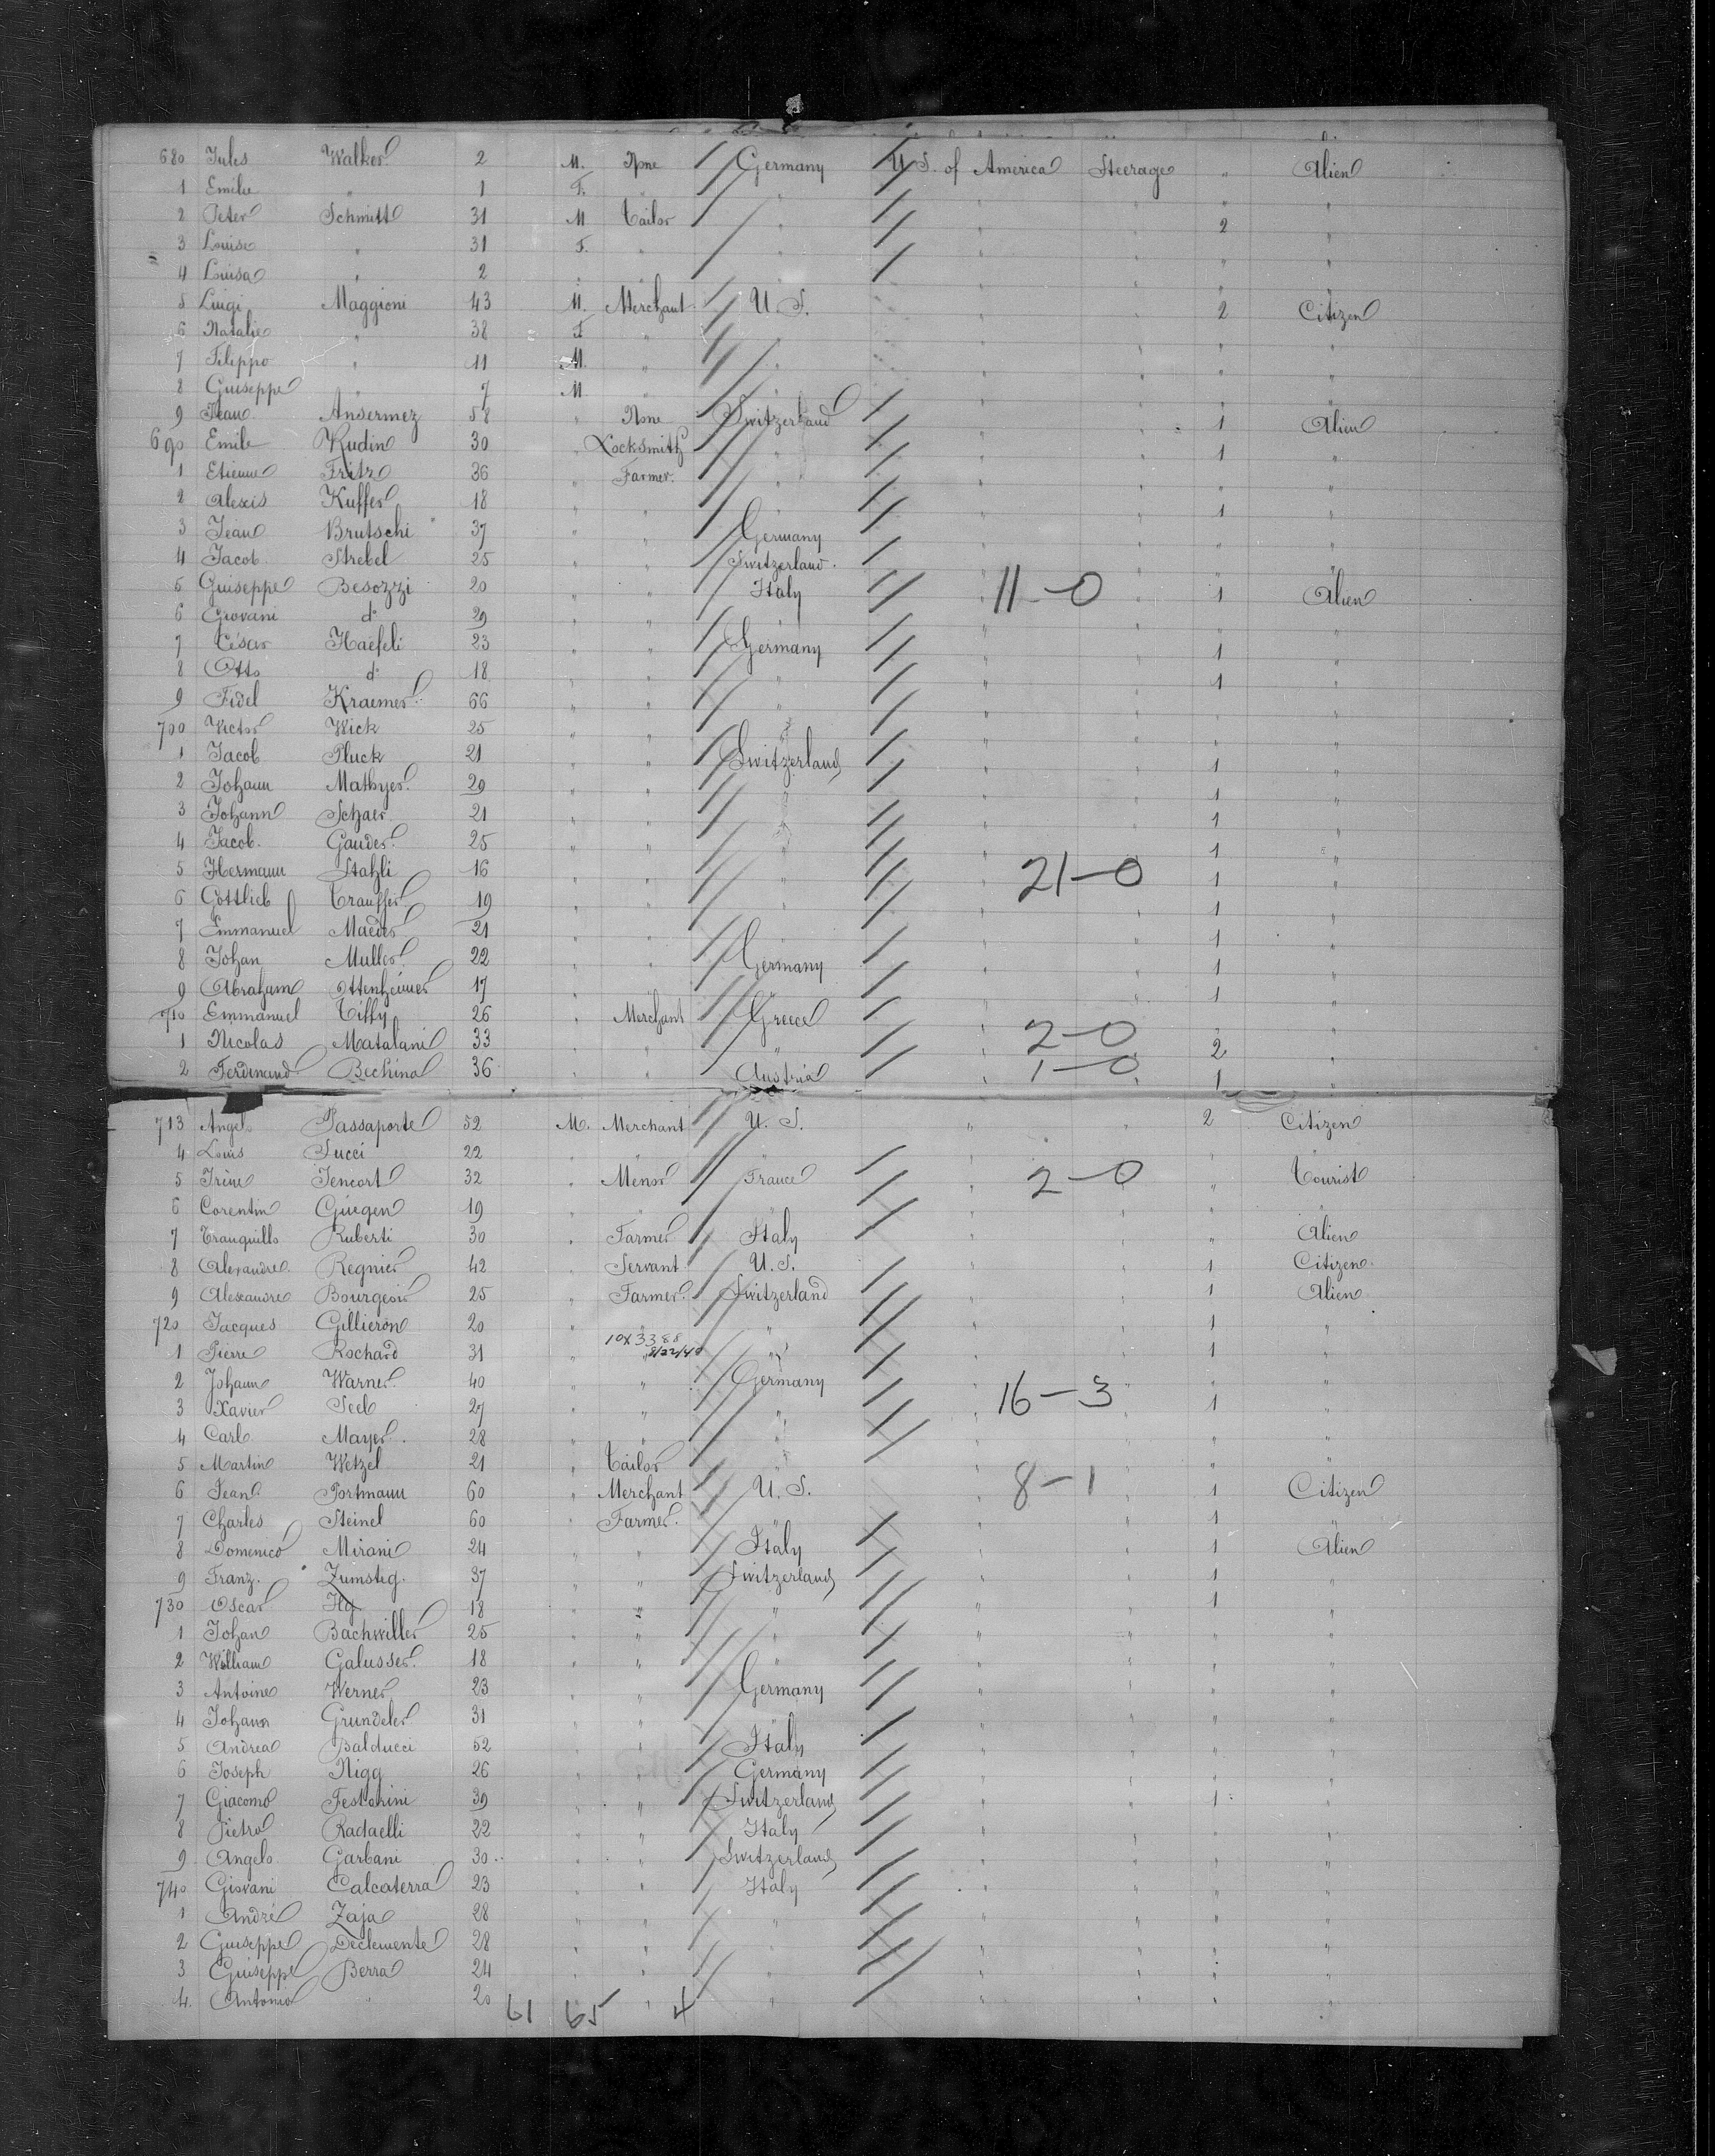 680 Jules Walker 2 M. None Germany U.S. of America Steerage " Alien
1 Emilie " 1 F. " " " " " "
2 Peter Schmitt 31 M Tailor " " " 2 "
3 Louise " 31 F. " " " " "
4 Luisa " 2 " " " " " "
5 Luigi Maggioni 43 M. Merchant U.S. " " 2 Citizen
6 Natalie " 38 F " " " " " "
7 Filippo " 11 M. " " " " " "
8 Guiseppe " 7 M " " " " " "
9 Jean Ansermez 58 " None Switzerland " " 1 Alien
690 Emile Rudin 30 " Locksmith " " " 1 "
1 Etienne Fritz 36 " Farmer. " " " " "
2 Alexis Kuffer 18 " " " " " 1 "
3 Jean Brutschi 37 " " Germany " " " "
4 Jacob Strebel 25 " " Switzerland. " " " "
5 Guiseppe Besozzi 20 " " Italy " 11-0 " 1 Alien
6 Giovani do 29 " " " " " " "
7 César Haefeli 23 " " Germany " " 1 "
8 Otto do 18 " " " " " 1 "
9 Fidel Kraemer 66 " " " " " " "
700 Victor Wick 25 " " " " " " "
1 Jacob Pluck 21 " " Switzerland " " 1 "
2 Johann Mathyer 29 " " " " " 1 "
3 Johann Schaer 21 " " " " " 1 "
4 Jacob Gauder 25 " " " " " 1 "
5 Hermann Stahli 16 " " " " 21-0 1 "
6 Gottlieb Trauffer 19 " " " " " 1 "
7 Emmanuel Maeder 21 " " " " " 1 "
8 Johan Muller 22 " " Germany " " 1 "
9 Abraham Ottenheimer 17 " " " " " 1 "
710 Emmanuel Tiffy 26 " Merchant Greece " " " "
1 Nicolas Matalani 33 " " " " 2-0 2 "
2 Ferdinand Bechina 36 " " Austria " 1-0 " 1 "
713 Angelo Passaporte 52 M. Merchant U.S. " " 2 Citizen
4 Louis Pucci 22 " " " " " " "
5 Irine Jencort 32 " France " 2-0 " " Tourist
6 Corentin Guegen 19 " " " " " " "
7 Tranquillo Ruberti 30 " Farmer Italy " " " Alien
8 Alexandre Regnier 42 " Servant U.S. " " 1 Citizen.
9 Alexandre Bourgeois 25 " Farmer Switzerland " " 1 Alien
720 Jacques Gillieron 20 " " " " " 1 "
10X3388
1 Pierre Rochard 31 " " " " " 1 "
2 Johann Warner 40 " " Germany " " " "
3 Xavier Seel 27 " " " " 16-3 1 "
4 Carl Mayer 28 " " " " " " "
5 Martin Wetzel 21 " Tailor " " " " "
6 Jean Portmann 60 " Merchant U.S. " 8-1 " 1 Citizen
7 Charles Steinel 60 " Farmer. " " " 1 "
8 Domenico Mirani 24 " " Italy " " 1 Alien
9 Franz. Zumsteg. 37 " " Switzerland " " 1 "
730 Oscar Ilg 18 " " " " " 1 "
1 Johan Bachwiller 25 " " " " " " "
2 William Galusser. 18 " " " " " " "
3 Antoine Werner 23 " " Germany " " " "
4 Johann Grundeler 31 " " " " " " "
5 Andrea Balducci 52 " " Italy " " " "
6 Joseph Nigg 26 " " Germany " " " "
7 Giacomo Festorini 39 " " Switzerland " " 1 "
8 Pietro Radaelli 22 " " Italy " " " "
9 Angelo Garbani 30 " " Switzerland " " " "
740 Giovani Calcaterra 23 " " Italy " " " "
1 André Zaja 28 " " " " " " "
2 Guiseppe Declemente 28 " " " " " " "
3 Guiseppe Berra 24 " " " " " " "
4. Antonio " 20 " " " " " " "
61 65 4